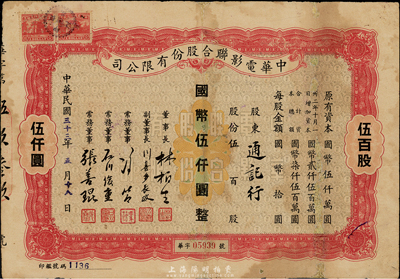 中華電影聯合股份有限公司
原有資本 國幣伍仟萬圓
三十二年十月一日增加資本 國幣貳仟伍百萬圓
合計資本總額 國幣柒仟伍百萬圓
每股金額 國幣拾圓
股東 通記行
股份 伍百股
國幣伍仟圓整
董事長 林柏生
副董事長 川喜多長政
常務董事 馮節
常務董事 石川俊重
常務董事 張善琨
中華民國三十三年五月十五日
伍百股
伍仟圓
華字 05939 號
印鑑號碼 1136
上海陽明拍賣